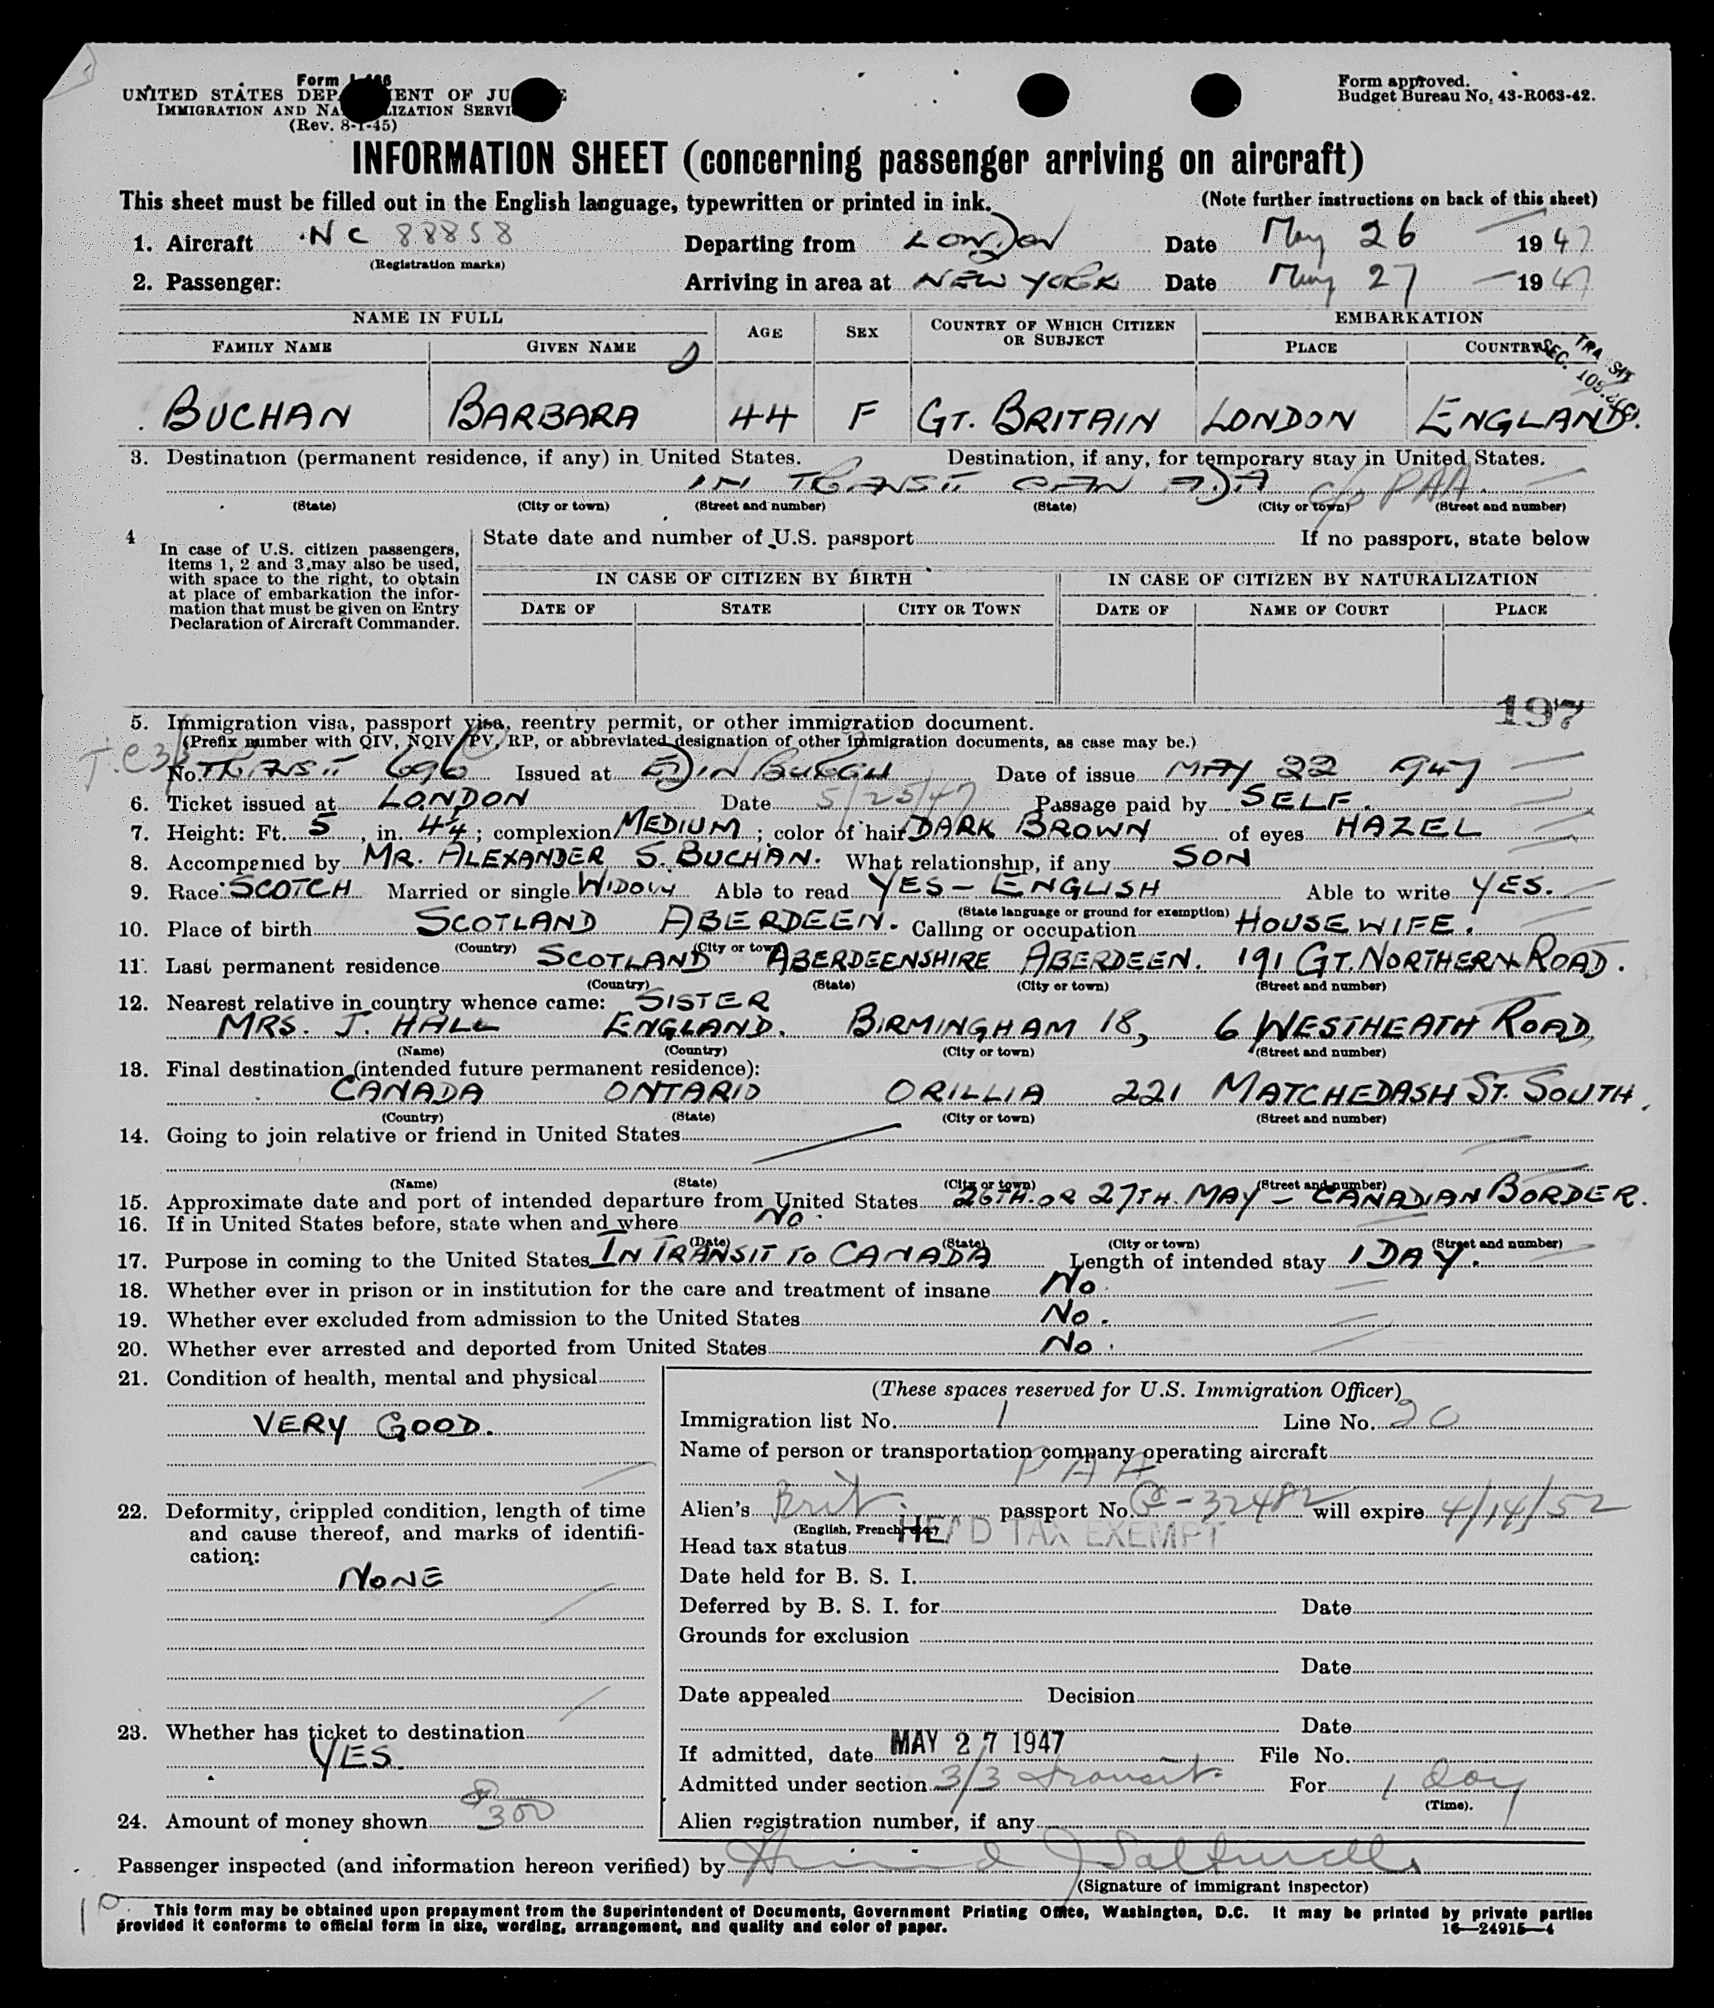 Form I-466
UNITED STATES DEPARTMENT OF JUSTICE
IMMIGRATION AND NATURALIZATION SERVICE
(Rev. 8-1-45)
Form approved.
Budget Bureau No. 43-R063-42.
INFORMATION SHEET (concerning passenger arriving on aircraft)
This sheet must be filled out in the English language, typewritten or printed in ink. (Note further instructions on back of this sheet)
1. Aircraft NC 88858 Departing from LONDON Date May 26 1947
(Registration marks)
2. Passenger: Arriving in area at NEW YORK Date May 27 1947
NAME IN FULL AGE SEX COUNTRY OF WHICH CITIZEN OR SUBJECT EMBARKATION
FAMILY NAME GIVEN NAME PLACE COUNTRY
TRANSIT SEC.
BUCHAN BARBARA 44 F GT. BRITAIN LONDON ENGLAND.
3. Destination (permanent residence, if any) in United States. Destination, if any, for temporary stay in United States.
IN TRANSIT CANADA c/o PAA
(State) (City or town) (Street and number) (State) (City or town) (Street and number)
4 In case of U.S. citizen passengers, items 1, 2 and 3, may also be used, with space to the right, to obtain at place of embarkation the information that must be given on Entry Declaration of Aircraft Commander.
State date and number of U.S. passport If no passport, state below
IN CASE OF CITIZEN BY BIRTH IN CASE OF CITIZEN BY NATURALIZATION
DATE OF STATE CITY OR TOWN DATE OF NAME OF COURT PLACE
197
5. Immigration visa, passport visa, reentry permit, or other immigration document.
(Prefix number with QIV, NQIV, PV, RP, or abbreviated designation of other immigration documents, as case may be.)
No. TRANSIT 696 Issued at EDINBURGH Date of issue MAY 22 1947
6. Ticket issued at LONDON Date 5/25/47 Passage paid by SELF.
7. Height: Ft. 5, in. 4¼; complexion MEDIUM; color of hair DARK BROWN of eyes HAZEL
8. Accompanied by MR. ALEXANDER S. BUCHAN. What relationship, if any SON
9. Race SCOTCH Married or single WIDOW Able to read YES - ENGLISH Able to write YES.
(State language or ground for exemption)
10. Place of birth SCOTLAND ABERDEEN. Calling or occupation HOUSEWIFE.
(Country) (City or town)
11. Last permanent residence SCOTLAND ABERDEENSHIRE ABERDEEN. 191 GT. NORTHERN ROAD.
(Country) (State) (City or town) (Street and number)
12. Nearest relative in country whence came: SISTER
MRS. J. HALL ENGLAND. BIRMINGHAM 18, 6 WESTHEATH ROAD,
(Name) (Country) (City or town) (Street and number)
13. Final destination (intended future permanent residence):
CANADA ONTARIO ORILLIA 221 MATCHEDASH ST. SOUTH.
(Country) (State) (City or town) (Street and number)
14. Going to join relative or friend in United States
(Name) (State) (City or town) (Street and number)
15. Approximate date and port of intended departure from United States 26TH. OR 27TH. MAY - CANADIAN BORDER.
16. If in United States before, state when and where NO.
(Date) (State) (City or town) (Street and number)
17. Purpose in coming to the United States IN TRANSIT TO CANADA Length of intended stay 1 DAY.
18. Whether ever in prison or in institution for the care and treatment of insane NO.
19. Whether ever excluded from admission to the United States NO.
20. Whether ever arrested and deported from United States NO.
21. Condition of health, mental and physical
VERY GOOD.
22. Deformity, crippled condition, length of time
and cause thereof, and marks of identifi-
cation:
NONE
23. Whether has ticket to destination
YES.
24. Amount of money shown $300
(These spaces reserved for U.S. Immigration Officer)
Immigration list No. 1 Line No. 20
Name of person or transportation company operating aircraft
PAA
Alien's Brit passport No. C-32482 will expire 4/14/52
(English, French, etc.)
Head tax status HEAD TAX EXEMPT
Date held for B. S. I.
Deferred by B. S. I. for Date
Grounds for exclusion
Date
Date appealed Decision
Date
If admitted, date MAY 27 1947 File No.
Admitted under section 3/3 transit For 1 day
(Time).
Alien registration number, if any
Passenger inspected (and information hereon verified) by
(Signature of immigrant inspector)
This form may be obtained upon prepayment from the Superintendent of Documents, Government Printing Office, Washington, D.C. It may be printed by private parties
provided it conforms to official form in size, wording, arrangement, and quality and color of paper. 16—24915-4